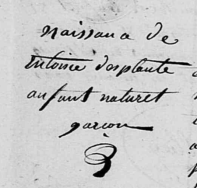 naissance de
antoine desplante
anfant naturel
garçon